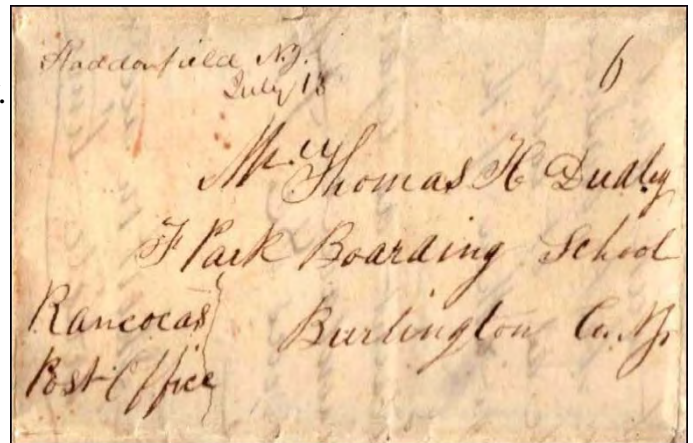 Haddonfield NJ.
July 18
6
Mr. Thomas H Dudley
F Park Boarding School
Rancocas
Burlington Co. NJ
Post Office